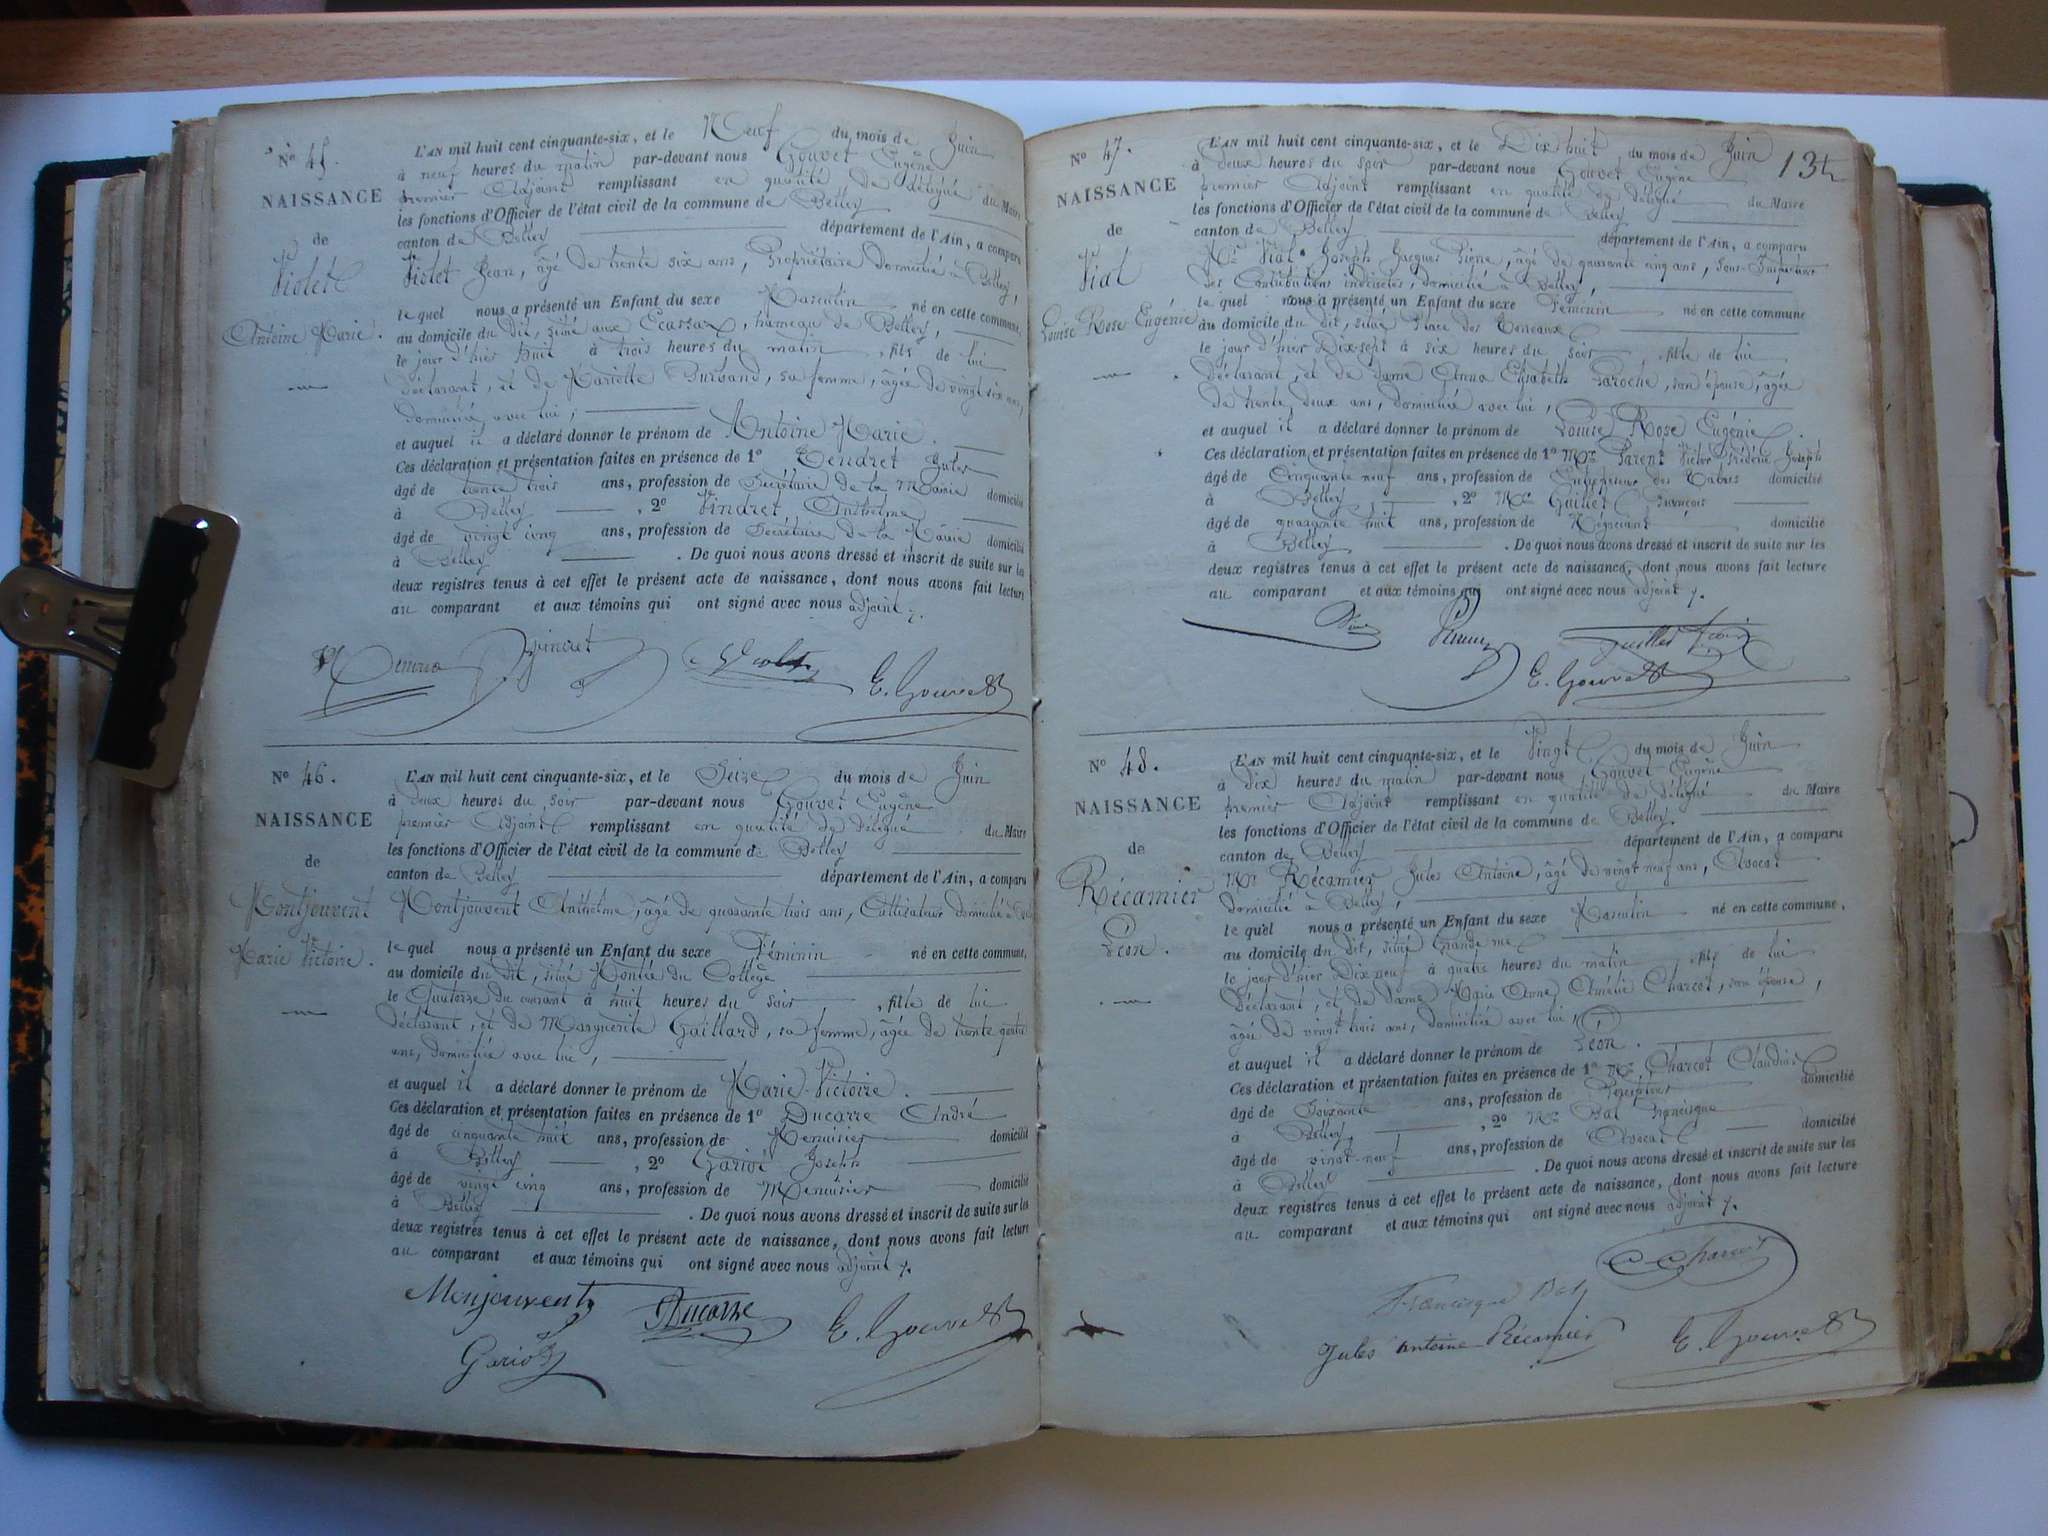 N° 45.
NAISSANCE
de
Violet
Antoine Marie.
L'AN mil huit cent cinquante-six, et le Neuf du mois de Juin
à neuf heures du matin par-devant nous Gouvet Eugène
premier Adjoint remplissant en qualité de délégué du Maire
les fonctions d'Officier de l'état civil de la commune de Belley
canton de Belley département de l'Ain, a comparu
Violet Jean, âgé de trente six ans, Propriétaire domicilié à Belley,
le quel nous a présenté un Enfant du sexe Masculin né en cette commune,
au domicile du dit, situé aux Ecassaz, hameau de Belley,
le jour d'hier huit à trois heures du matin, fils de lui
déclarant, et de Mariette Burband, sa femme, âgée de vingt six ans,
domiciliée avec lui,
et auquel il a déclaré donner le prénom de Antoine Marie.
Ces déclaration et présentation faites en présence de 1° Tendret Jules
âgé de trente trois ans, profession de Secrétaire de la Mairie domicilié
à Belley, 2° Vindret Anthelme
âgé de vingt cinq ans, profession de Secrétaire de la Mairie domicilié
à Belley. De quoi nous avons dressé et inscrit de suite sur les
deux registres tenus à cet effet le présent acte de naissance, dont nous avons fait lecture
au comparant et aux témoins qui ont signé avec nous adjoint
Vindret
E. Gouvet
N° 46.
NAISSANCE
de
Montjouvent
Marie Victoire.
L'AN mil huit cent cinquante-six, et le Seize du mois de Juin
à deux heures du soir par-devant nous Gouvet Eugène
premier Adjoint remplissant en qualité de délégué du Maire
les fonctions d'Officier de l'état civil de la commune de Belley
canton de Belley département de l'Ain, a comparu
Montjouvent Anthelme, âgé de quarante trois ans, Cultivateur domicilié à
le quel nous a présenté un Enfant du sexe Féminin né en cette commune,
au domicile du dit, situé Montée du Collège
le Quatorze du courant à huit heures du soir, fille de lui
déclarant, et de Marguerite Gaillard, sa femme, âgée de trente quatre
ans, domiciliée avec lui,
et auquel il a déclaré donner le prénom de Marie-Victoire.
Ces déclaration et présentation faites en présence de 1° Ducarre André
âgé de cinquante huit ans, profession de Menuisier domicilié
à Belley, 2° Gariod Joseph
âgé de vingt cinq ans, profession de Menuisier domicilié
à Belley. De quoi nous avons dressé et inscrit de suite sur les
deux registres tenus à cet effet le présent acte de naissance, dont nous avons fait lecture
au comparant et aux témoins qui ont signé avec nous adjoint
Monjouvent Ducarre E. Gouvet
Gariod
134
N° 47.
NAISSANCE
de
Vial
Louise Rose Eugénie
L'AN mil huit cent cinquante-six, et le Dix huit, du mois de Juin
à deux heures du soir par-devant nous Gouvet Eugène
premier Adjoint remplissant en qualité de délégué du Maire
les fonctions d'Officier de l'état civil de la commune de Belley
canton de Belley département de l'Ain, a comparu
Mr Vial Joseph Jacques Pierre, âgé de quarante cinq ans, Sous-Inspecteur
des Contributions indirectes, domicilié à Belley,
le quel nous a présenté un Enfant du sexe Féminin né en cette commune
au domicile du dit, situé Place des Terreaux
le jour d'hier Dix-sept à six heures du soir, fille de lui
déclarant, et de dame Anna Elisabeth Laroche, son épouse, âgée
de trente deux ans, domiciliée avec lui,
et auquel il a déclaré donner le prénom de Louise Rose Eugénie.
Ces déclaration et présentation faites en présence de 1° Mr Parent Victor Frédéric Joseph
âgé de Cinquante neuf ans, profession de Entreposeur des Tabacs domicilié
à Belley, 2° Mr Guillet François
âgé de quarante huit ans, profession de Négociant domicilié
à Belley. De quoi nous avons dressé et inscrit de suite sur les
deux registres tenus à cet effet le présent acte de naissance, dont nous avons fait lecture
au comparant et aux témoins qui ont signé avec nous adjoint
E. Gouvet
N° 48.
NAISSANCE
de
Récamier
Léon.
L'AN mil huit cent cinquante-six, et le Vingt du mois de Juin
à dix heures du matin par-devant nous Gouvet Eugène
premier Adjoint remplissant en qualité de délégué du Maire
les fonctions d'Officier de l'état civil de la commune de Belley.
canton de Belley département de l'Ain, a comparu
Mr Récamier Jules Antoine, âgé de vingt neuf ans, Avocat
domicilié à Belley,
le quel nous a présenté un Enfant du sexe Masculin né en cette commune,
au domicile du dit, situé Grande rue
le jour d'hier Dix neuf à quatre heures du matin, fils de lui
déclarant, et de dame Marie Anne Amélie Charcot, son épouse,
âgée de vingt trois ans, domiciliée avec lui,
et auquel il a déclaré donner le prénom de Léon.
Ces déclaration et présentation faites en présence de 1° Mr Charcot Claudius
âgé de Soixante ans, profession de domicilié
à Belley, 2° Mr Bal Francisque
âgé de vingt-neuf ans, profession de Avocat domicilié
à Belley. De quoi nous avons dressé et inscrit de suite sur les
deux registres tenus à cet effet le présent acte de naissance, dont nous avons fait lecture
au comparant et aux témoins qui ont signé avec nous adjoint
C. Charcot
Francisque Bal
Jules Antoine Récamier E. Gouvet